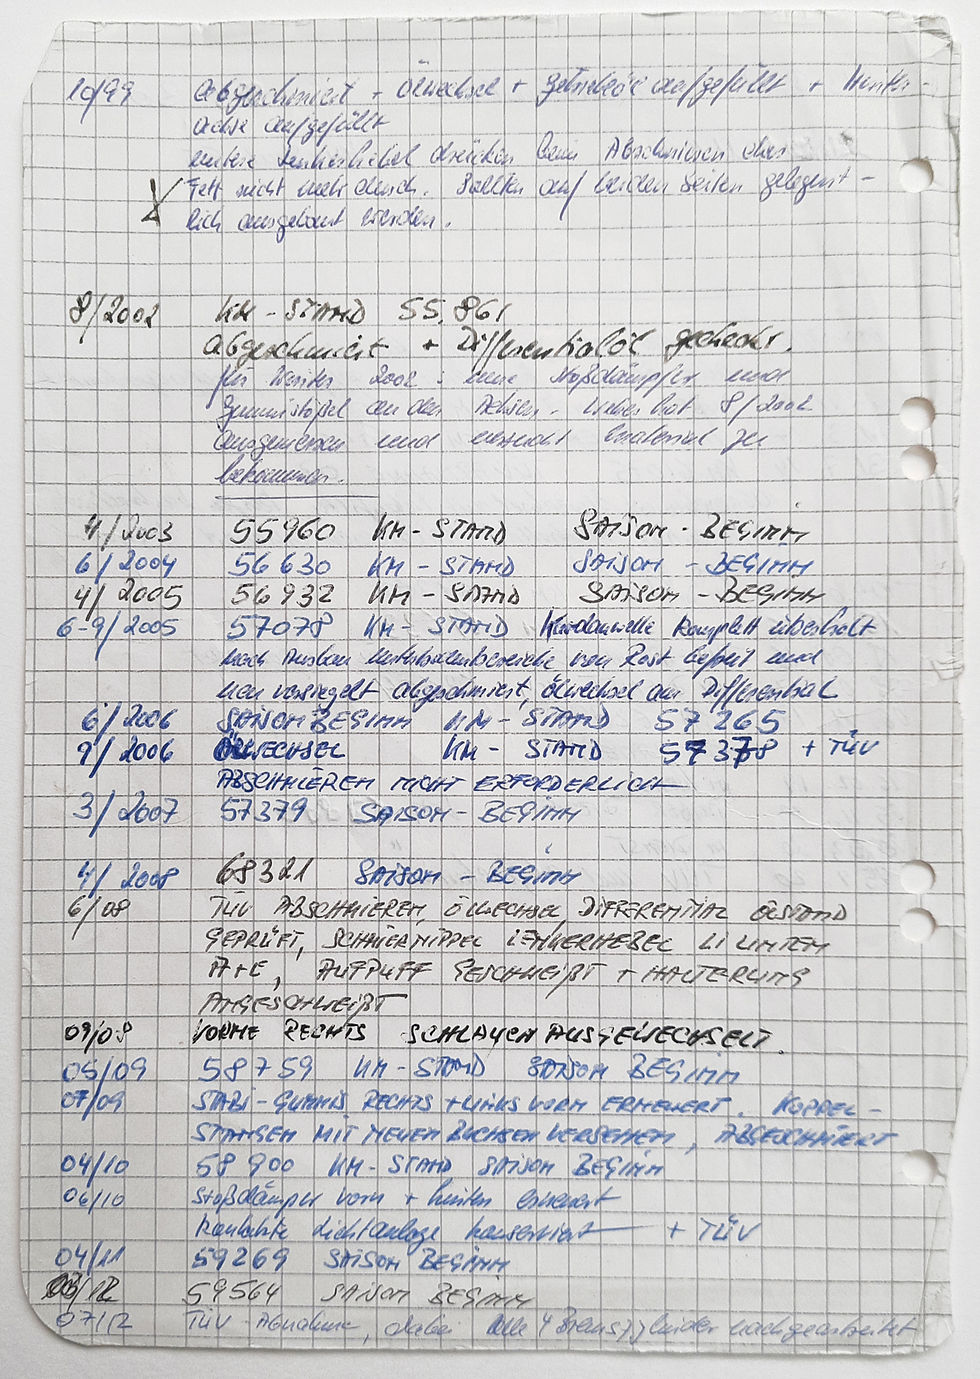 10/99 abgeschmiert + Ölwechsel + Getriebeöl aufgefüllt + Hinter-
achse aufgefüllt
untere Lenkerhebel drücken beim Abschmieren das
Fett nicht mehr durch. Sollten auf beiden Seiten gelegent-
lich ausgebaut werden.
8/2002 KM-STAND 55.861
abgeschmiert + Differentialöl gecheckt.
für Winter 2002: neue Stoßdämpfer und
Gummistößel an den Achsen. hat 8/2002
ausgemessen und versucht Material zu
bekommen.
4/2003 55960 KM-STAND SAISON-BEGINN
6/2004 56630 KM-STAND SAISON-BEGINN
4/2005 56932 KM-STAND SAISON-BEGINN
6-9/2005 57078 KM-STAND Kardanwelle komplett überholt
nach Ausbau Unterbodenbereiche von Rost befreit und
neu versiegelt abgeschmiert, Ölwechsel am Differential
6/2006 SAISONBEGINN KM-STAND 57265
9/2006 ÖLWECHSEL KM-STAND 57378 + TÜV
ABSCHMIEREN NICHT ERFORDERLICH
3/2007 57379 SAISON-BEGINN
4/2008 68321 SAISON-BEGINN
6/08 TÜV ABSCHMIEREN, ÖLWECHSEL, DIFFERENTIAL ÖLSTAND
GEPRÜFT, SCHMIERNIPPEL LENKERHEBEL LI UNTEN
A+E, AUSPUFF GESCHWEIßT + HALTERUNG
ANGESCHWEIßT
09/08 VORNE RECHTS SCHLAUCH AUSGEWECHSELT.
05/09 58759 KM-STAND SAISON BEGINN
07/09 STABI-GUMMIS RECHTS + LINKS VORN ERNEUERT. KOPPEL-
STANGEN MIT NEUEN BUCHSEN VERSEHEN, ABGESCHMIERT
04/10 58900 KM-STAND SAISON BEGINN
06/10 Stoßdämpfer vorn + hinten erneuert
Kontakte Lichtanlage konserviert + TÜV
04/11 59269 SAISON BEGINN
03/12 59564 SAISON BEGINN
07/12 TÜV-Abnahme, dabei alle 4 Bremszylinder nachgearbeitet